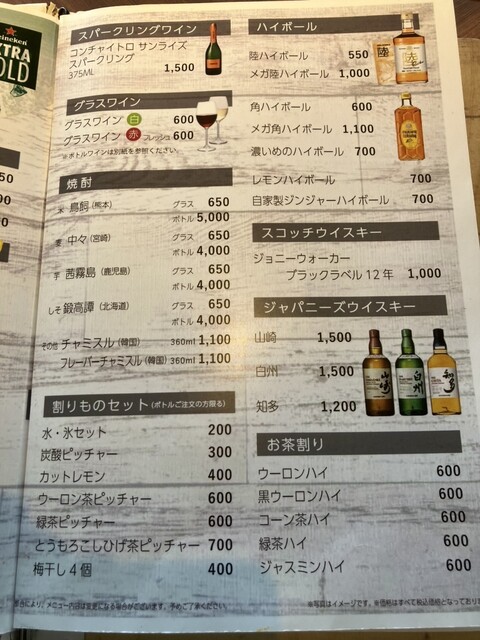 Heineken
EXTRA
COLD
スパークリングワイン
コンチャイトロ サンライズ
スパークリング
375ML 1,500
グラスワイン
グラスワイン 白 600
グラスワイン 赤 フレッシュ 600
※ボトルワインは別紙を参照ください。
焼酎
米 鳥飼(熊本) グラス 650
ボトル 5,000
麦 中々(宮崎) グラス 650
ボトル 4,000
芋 茜霧島(鹿児島) グラス 650
ボトル 4,000
しそ 鍛高譚(北海道) グラス 650
ボトル 4,000
その他 チャミスル(韓国) 360ml 1,100
フレーバーチャミスル(韓国) 360ml 1,100
割りものセット(ボトルご注文の方限る)
水・氷セット 200
炭酸ピッチャー 300
カットレモン 400
ウーロン茶ピッチャー 600
緑茶ピッチャー 600
とうもろこしひげ茶ピッチャー 700
梅干し4個 400
ハイボール
陸ハイボール 550
メガ陸ハイボール 1,000
角ハイボール 600
メガ角ハイボール 1,100
濃いめのハイボール 700
レモンハイボール 700
自家製ジンジャーハイボール 700
スコッチウイスキー
ジョニーウォーカー
ブラックラベル12年 1,000
ジャパニーズウイスキー
山崎 1,500
白州 1,500
知多 1,200
山崎
白州
知多
お茶割り
ウーロンハイ 600
黒ウーロンハイ 600
コーン茶ハイ 600
緑茶ハイ 600
ジャスミンハイ 600
合により、メニュー内容は変更になる場合がございます。予めご了承ください。
※写真はイメージです。※価格はすべて税込価格となってお